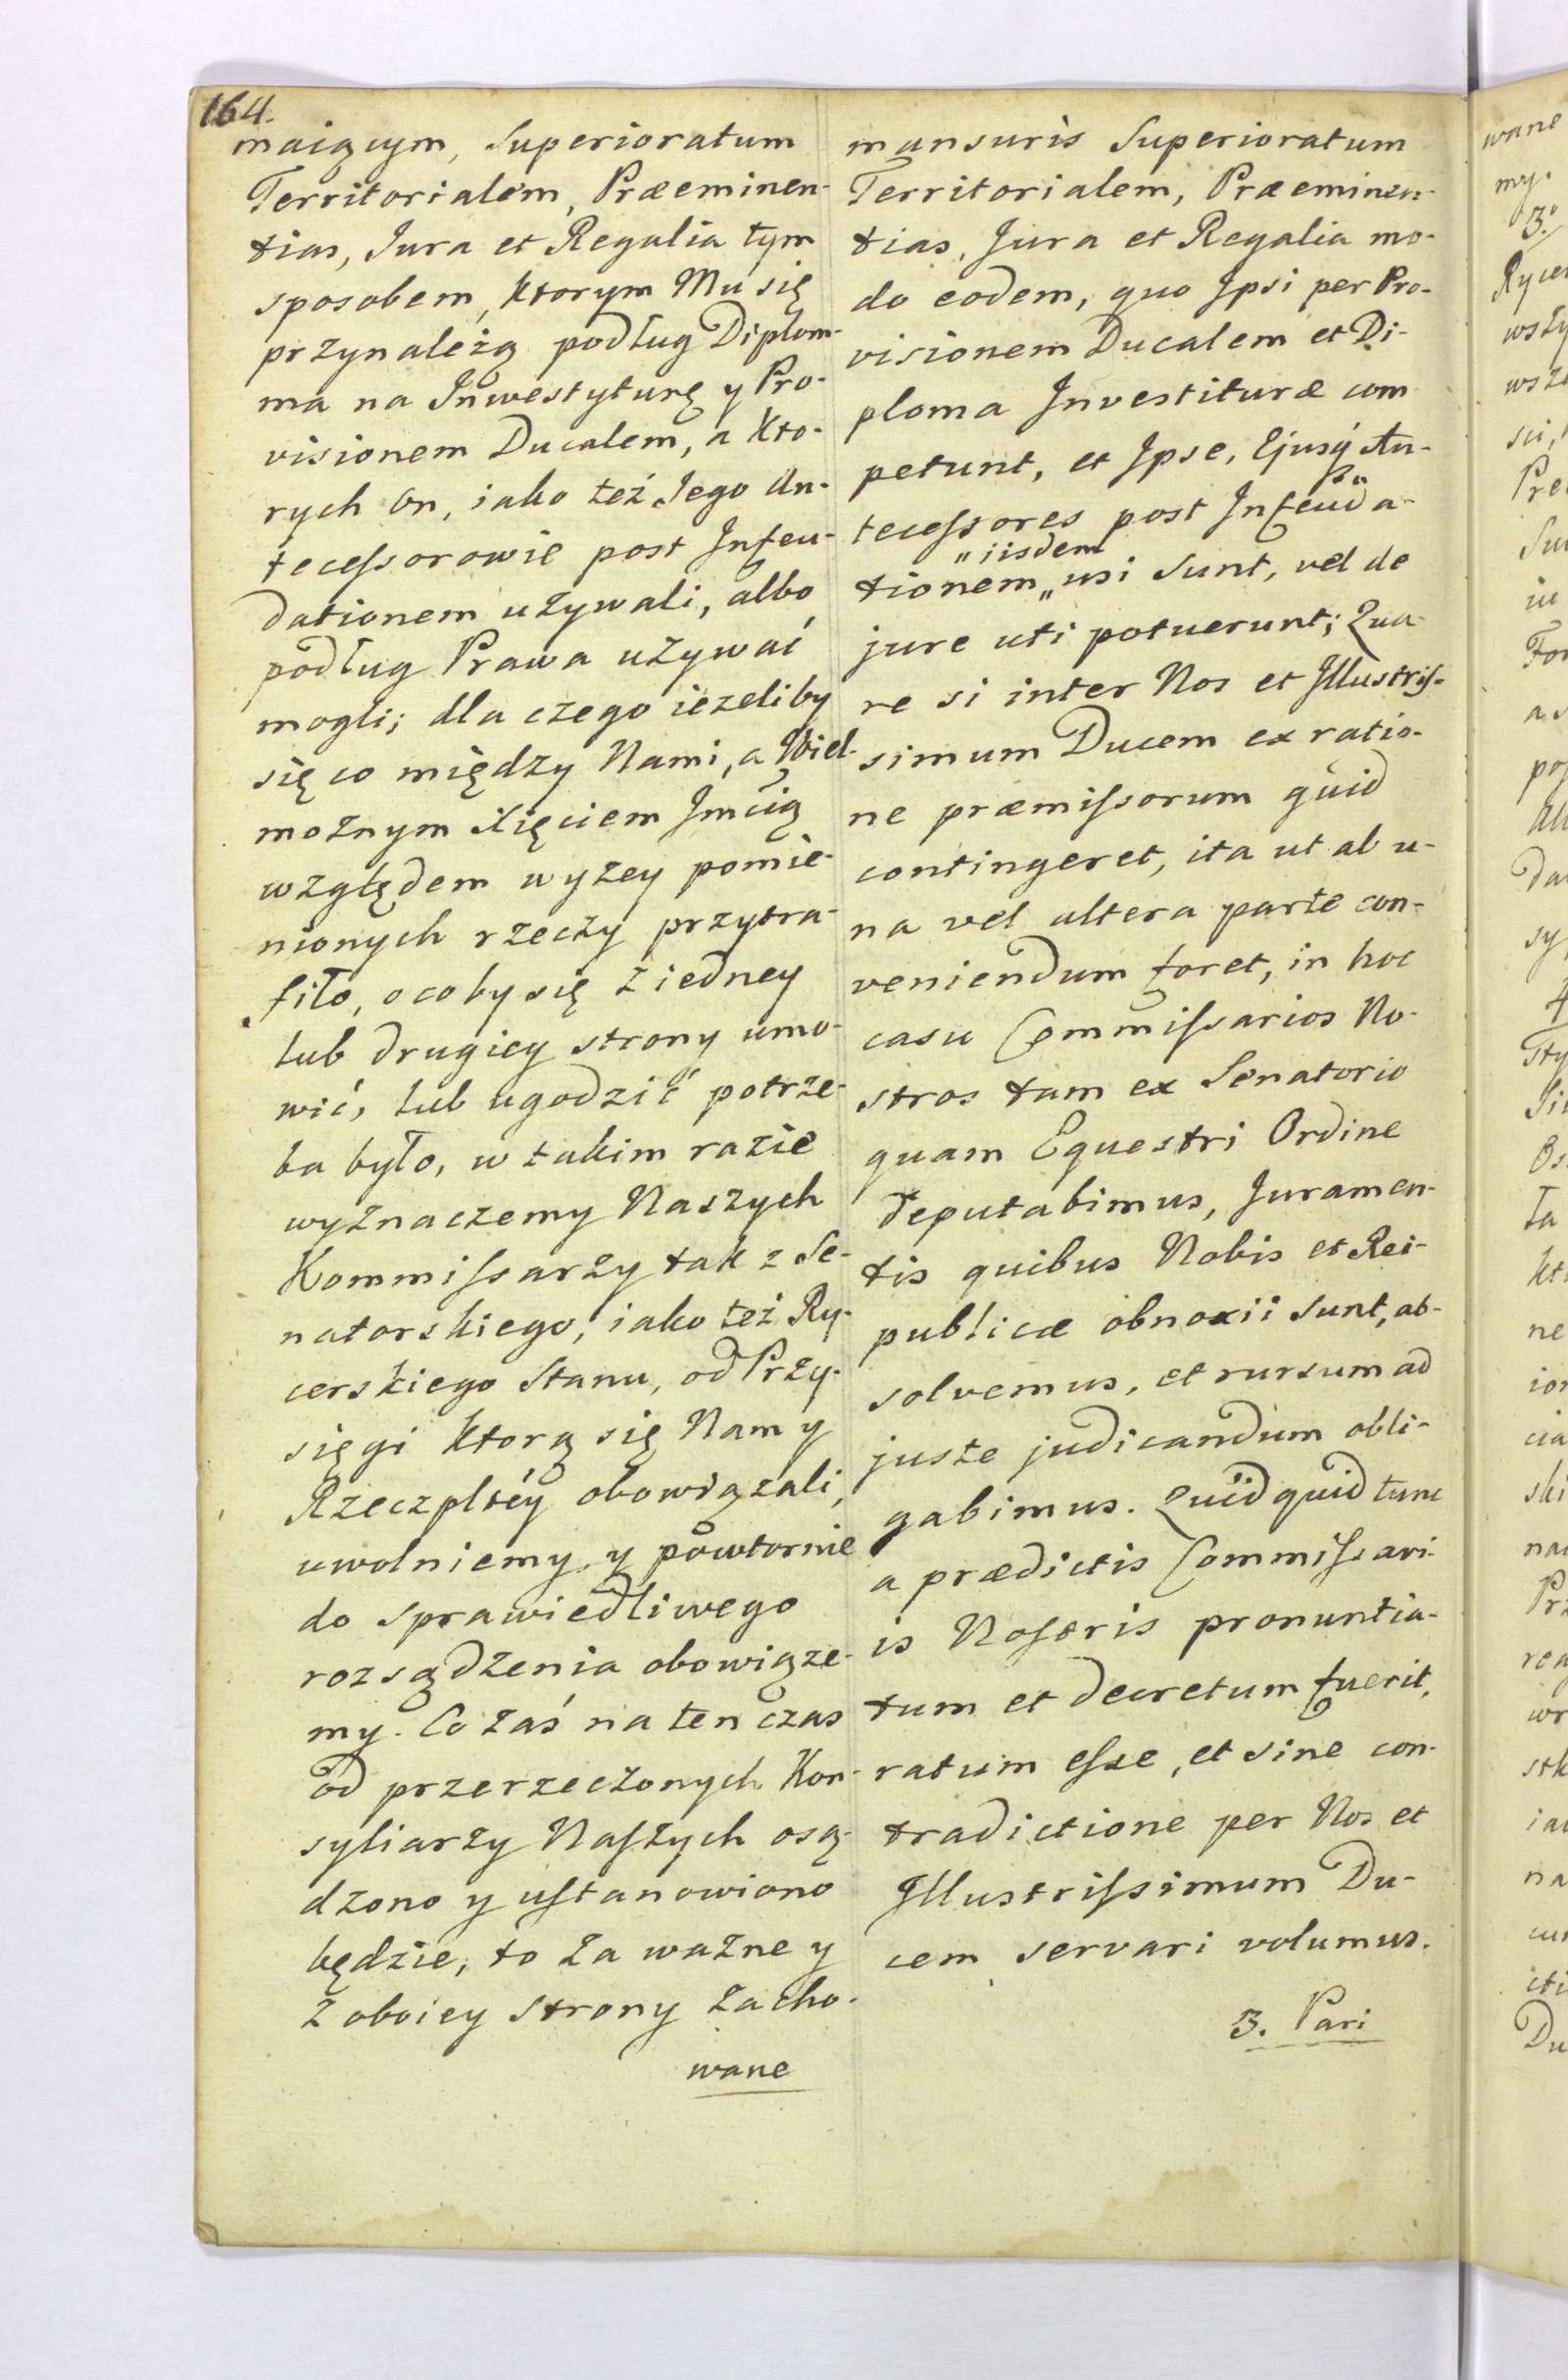 164.
maiącym, Superioratum
Territorialem, Præeminen-
tias, Jura et Regalia tym
sposobem, ktorym Mu się
przynależą podług Diplom-
ma na Inwestyturę y Pro-
visionem Ducalem, a kto-
rych On, iako też Jego An-
tecessorowie post Infeu-
dationem używali, albo
podług Prawa używać
mogli; dla czego ieżeliby
się co między Nami, a Wiel-
możnym Xięciem Jmcią
względem wyżey pomie-
nionych rzeczy przytra-
fiło, o co by się z iedney
lub drugiey strony umo-
wić, lub ugodzić potrze-
ba było, w takim razie
wyznaczemy Naszych
Kommissarzy tak z Se-
natorskiego, iako też Ry-
cerskiego Stanu, od Przy-
sięgi ktorą się Nam y
Rzeczpltéy obowiązali,
uwolniemy, y powtornie
do sprawiedliwego
rozsądzenia obowiąze-
my. Co zaś na ten czas
od przerzeczonych Kon-
syliarzy Naszych osą-
dzono y ustanowiono
będzie, to za ważne y
z oboiey strony zacho-
wane
mansuris Superioratum
Territorialem, Præeminen-
tias, Jura et Regalia mo-
do eodem, quo Ipsi per Pro-
visionem Ducalem et Di-
ploma Investituræ com
petunt, et Ipse, Ejusq́ An-
tecessores post Infeuda-
„ iisdem
tionem „ usi sunt, vel de
jure uti potuerunt; Qua-
re si inter Nos et Illustris-
simum Ducem ex ratio-
ne præmissorum quid
contingeret, ita ut ab u-
na vel altera parte con-
veniendum foret, in hoc
casu Commissarios No-
stros tam ex Senatorio
quam Equestri Ordine
deputabimus, Juramen-
tis quibus Nobis et Rei-
publicæ obnoxii sunt, ab-
solvemus, et rursum ad
juste judicandum obli-
gabimus. Quidquid tunc
a prædictis Commissari-
is Nostris pronuntia-
tum et decretum fuerit,
ratum esse, et sine con-
tradictione per Nos et
Illustrissimum Du-
cem servari volumus.
3. Pari